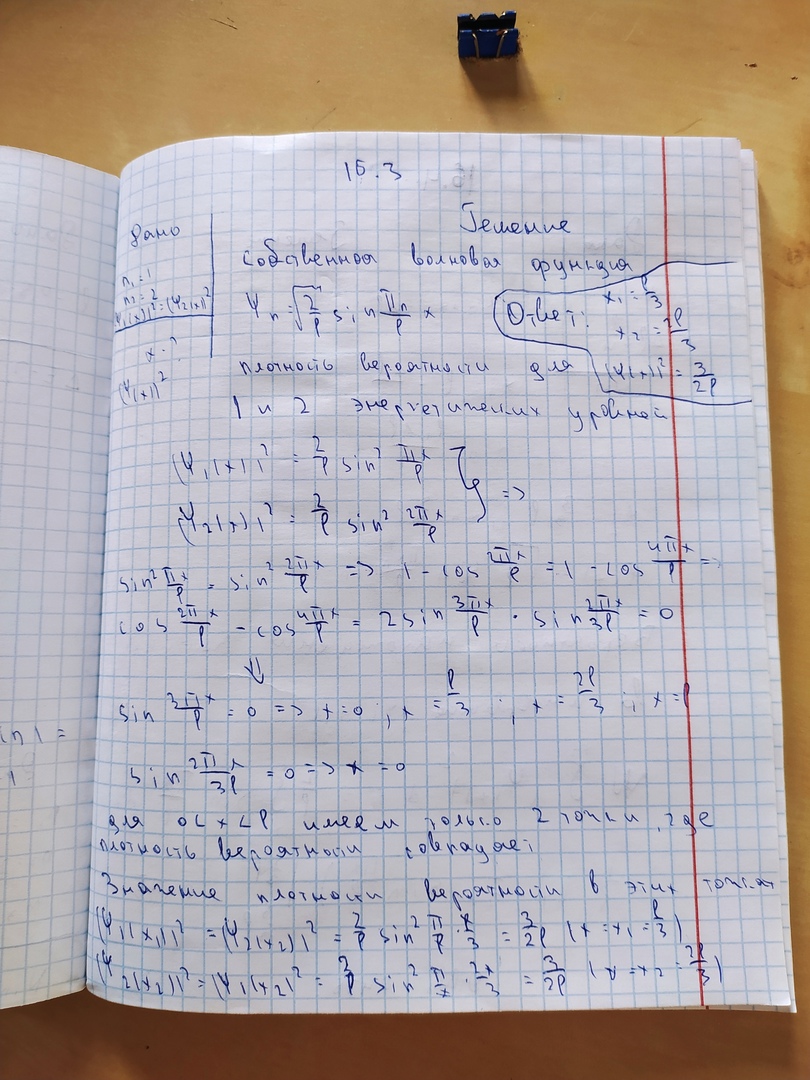 15.3
Дано
Решение
n₁ = 1
n₂ = 2
|Ψ₁(x)|² = |Ψ₂(x)|²
x - ?
|Ψ(x)|²
собственная волновая функция
Ψn = √(2/l) sin πn/l x
Ответ: x₁ = l/3
x₂ = 2l/3
|Ψ(x)|² = 3/2l
плотность вероятности для
1 и 2 энергетических уровней
|Ψ₁(x)|² = 2/l sin² πx/l
|Ψ₂(x)|² = 2/l sin² 2πx/l } =>
sin² πx/l = sin² 2πx/l => 1 - cos 2πx/l = 1 - cos 4πx/l =>
cos 2πx/l - cos 4πx/l = 2 sin 3πx/l · sin 2πx/3l = 0
⇓
sin 3πx/l = 0 => x = 0 ; x = l/3 ; x = 2l/3 ; x = l
sin 2πx/3l = 0 => x = 0
для 0 < x < l имеем только 2 точки, где
плотность вероятности совпадает
Значение плотности вероятности в этих точках
|Ψ₁(x₁)|² = |Ψ₂(x₂)|² = 2/l sin² π/l · x/3 = 3/2l (x = x₁ = l/3)
|Ψ₂(x₂)|² = |Ψ₁(x₂)|² = 2/l sin² π/x · 2x/3 = 3/2l (x = x₂ = 2l/3)
in 1 =
1